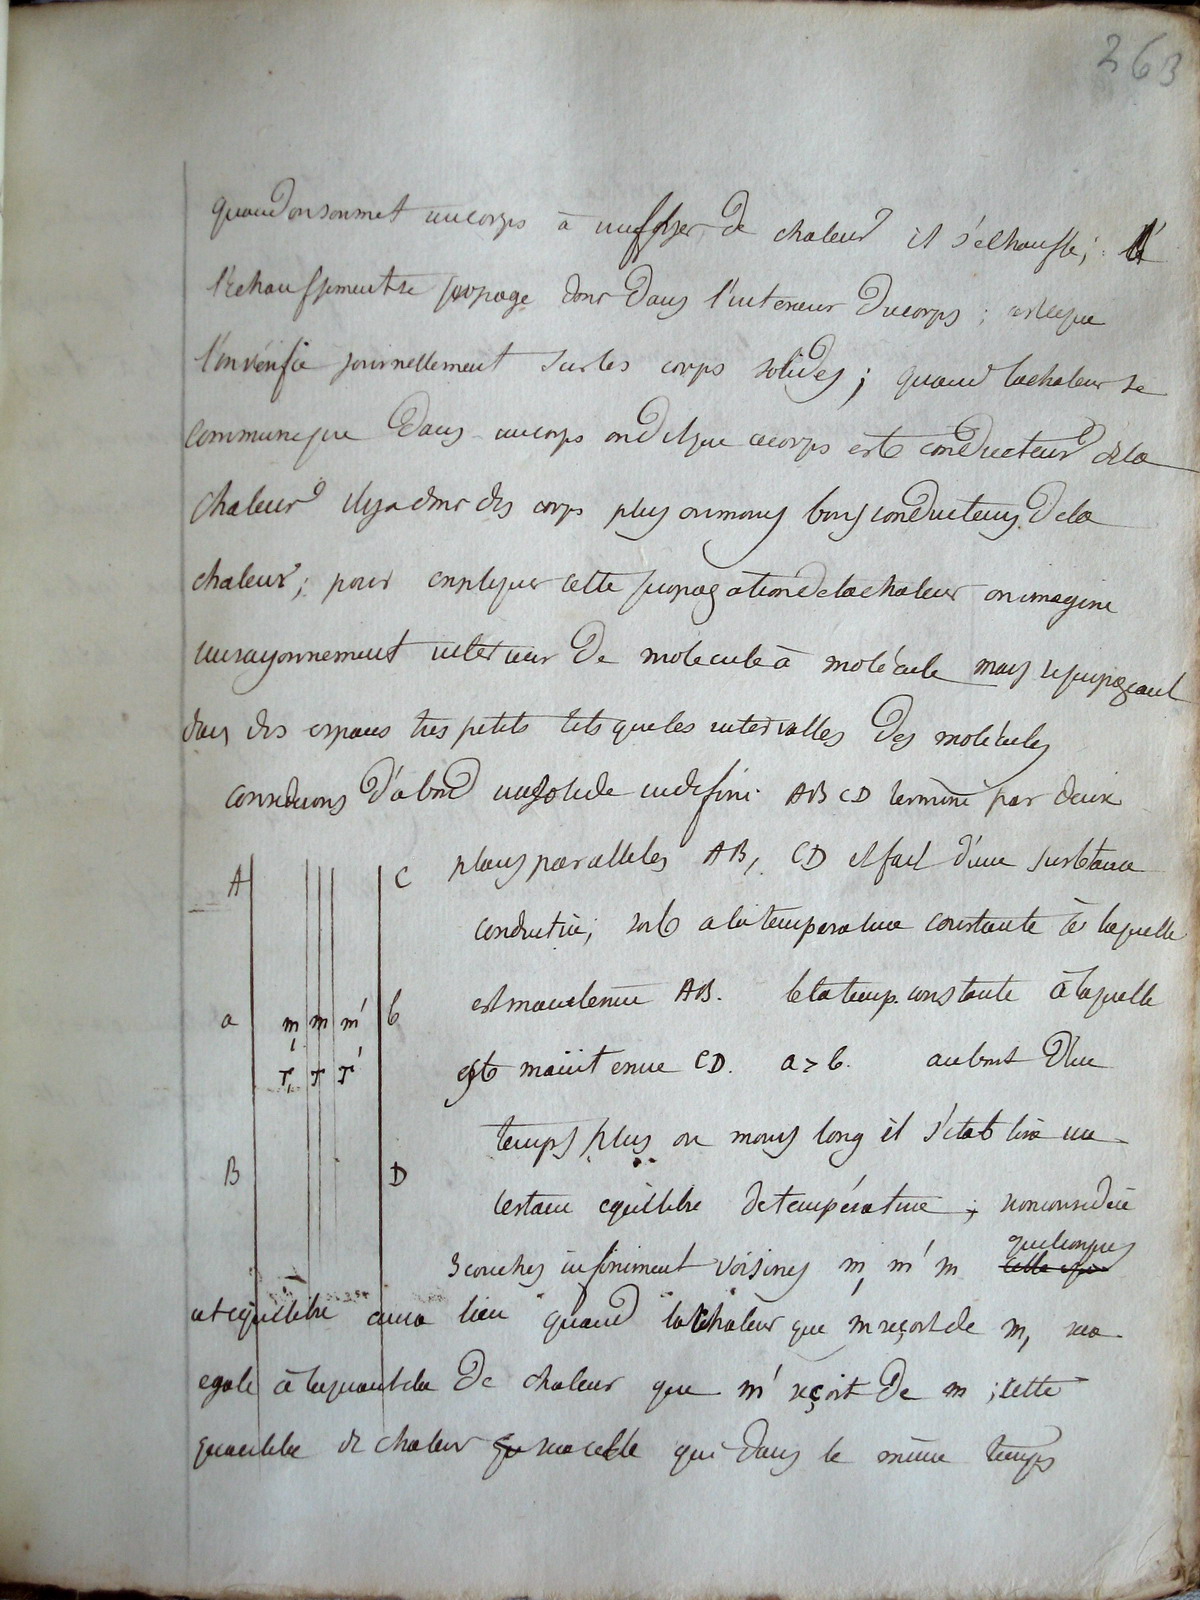 263
quand on soumet un corps à un foyer de chaleur il s'echauffe;
l'echauffement se propage donc dans l'interieur du corps; est ce que
l'on vérifie journellement sur les corps solides; quand la chaleur se
communique dans un corps on dit que ce corps est conducteur de la
chaleur il y a donc des corps plus ou moins bons conducteurs de la
chaleur; pour expliquer cette propagation de la chaleur on imagine
un rayonnement interieur de molecule à molécule mais se propageant
dans des espaces tres petits tels que les intervalles des molécules
considerons d'abord un solide indefini ABCD terminé par deux
plans paralleles AB, CD et fait d'une substance
conductrice; soit a la temperature constante à laquelle
est maintenue AB. b la temp. constante à laquelle
est maintenue CD. a > b. au bout d'un
temps plus ou moins long il s'etablira un
certain equilibre de température; si on considère
quelconques
3 couches infiniment voisines m, m' m
A C
a m, m m' b
T, T T'
B D
cet equilibre aura lieu quand la chaleur que m reçoit de m, sera
egale à la quantité de chaleur que m' reçoit de m; cette
quantité de chaleur sera celle qui dans le même temps